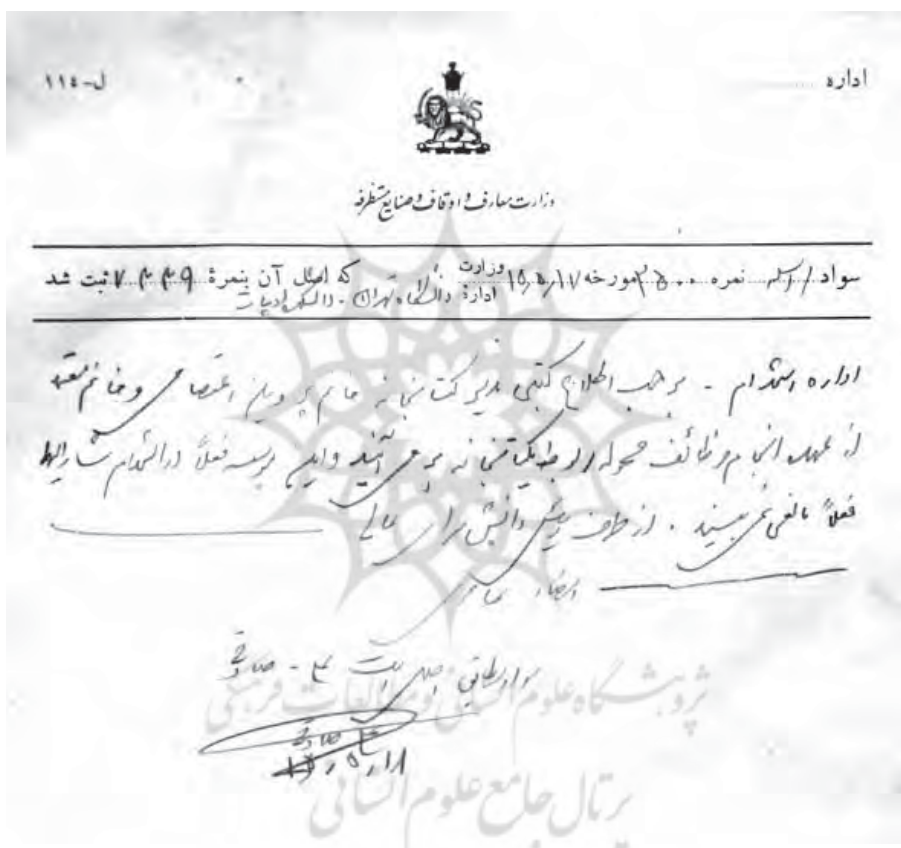 اداره
ل-۱۱۵
وزارت معارف و اوقاف و صنایع مستظرفه
سواد مراسله نمره ۲۵۰۰ مورخه ۱۵,۵,۱۷ وزارت اداره دانشگاه تهران - دانشکده ادبیات که اصل آن بنمرهٔ ۷۴۴۹ ثبت شد
اداره استخدام - بر حسب اطلاع کتبی مدیر کتابخانه خانم پروین اعتصامی و خانم
از عهده انجام وظائف محوله مربوط بکتابخانه بر می آیند و این موسسه فعلاً در استخدام مشارالیها
فعلاً مانعی نمی بیند. از طرف رئیس دانش سرای عالی
امضاء
سواد مطابق اصل است
۱۸,۵,
پژوهشگاه علوم انسانی و مطالعات فرهنگی
پرتال جامع علوم انسانی